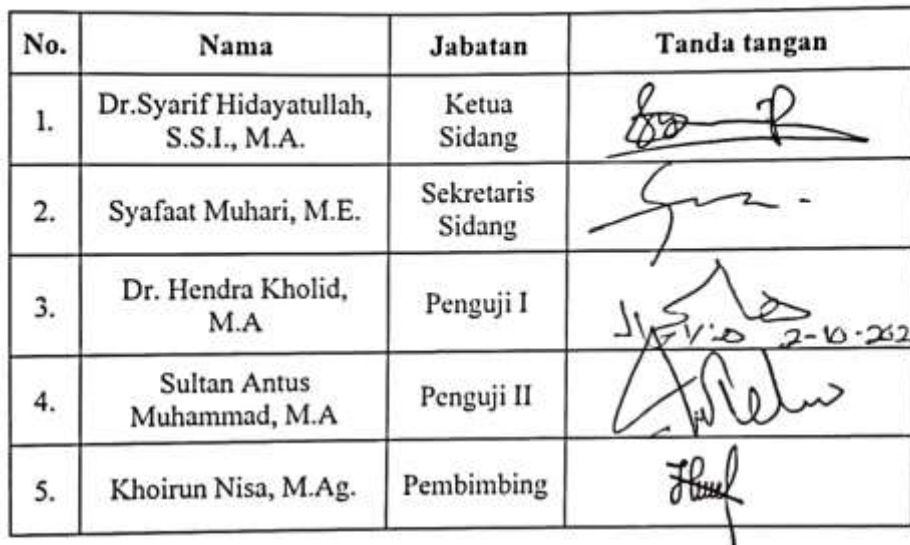 No. Nama Jabatan Tanda tangan
1. Dr.Syarif Hidayatullah, S.S.I., M.A. Ketua Sidang
2. Syafaat Muhari, M.E. Sekretaris Sidang
3. Dr. Hendra Kholid, M.A Penguji I
2-10-202
4. Sultan Antus Muhammad, M.A Penguji II
5. Khoirun Nisa, M.Ag. Pembimbing